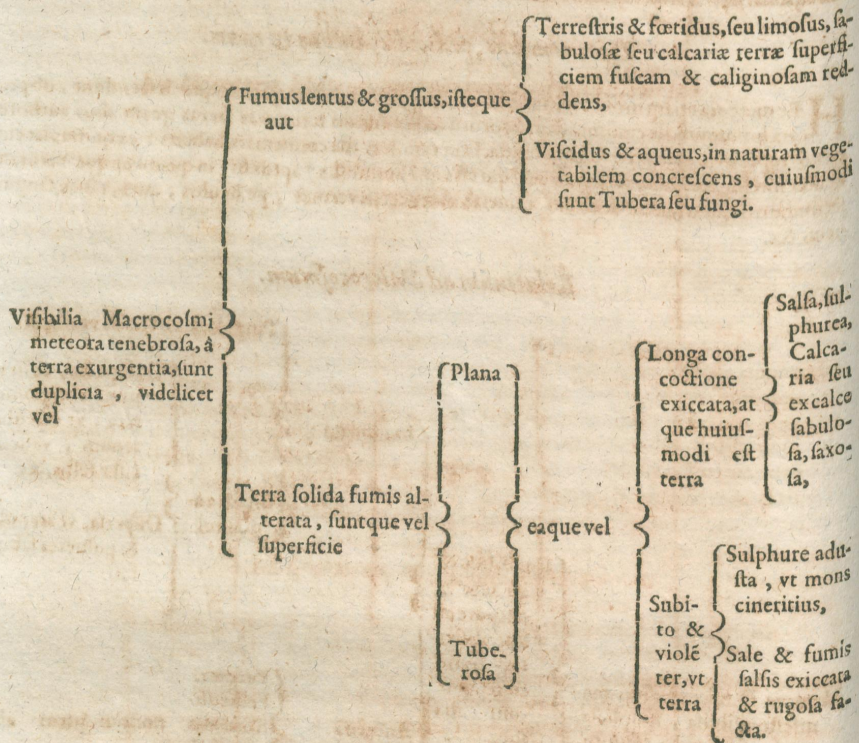 Viſibilia Macrocoſmi
meteora tenebroſa, à
terra exurgentia, ſunt
duplicia , videlicet
vel
Fumus lentus & groſſus, iſteque
aut
Terreſtris & fœtidus, ſeu limoſus, ſa-
buloſæ ſeu calcariæ terræ ſuperfi-
ciem fuſcam & caliginoſam red-
dens,
Viſcidus & aqueus, in naturam vege-
tabilem concreſcens , cuiuſmodi
ſunt Tubera ſeu fungi.
Terra ſolida fumis al-
terata , ſuntque vel
ſuperficie
Plana
Tube-
roſa
eaque vel
Longa con-
coctione
exiccata, at
que huiuſ-
modi eſt
terra
Salſa, ſul-
phurea,
Calca-
ria ſeu
ex calce
ſabulo-
ſa, ſaxo-
ſa,
Subi-
to &
violē
ter, vt
terra
Sulphure adu-
ſta , vt mons
cineritius,
Sale & fumis
ſalſis exiccata
& rugoſa fa-
cta.